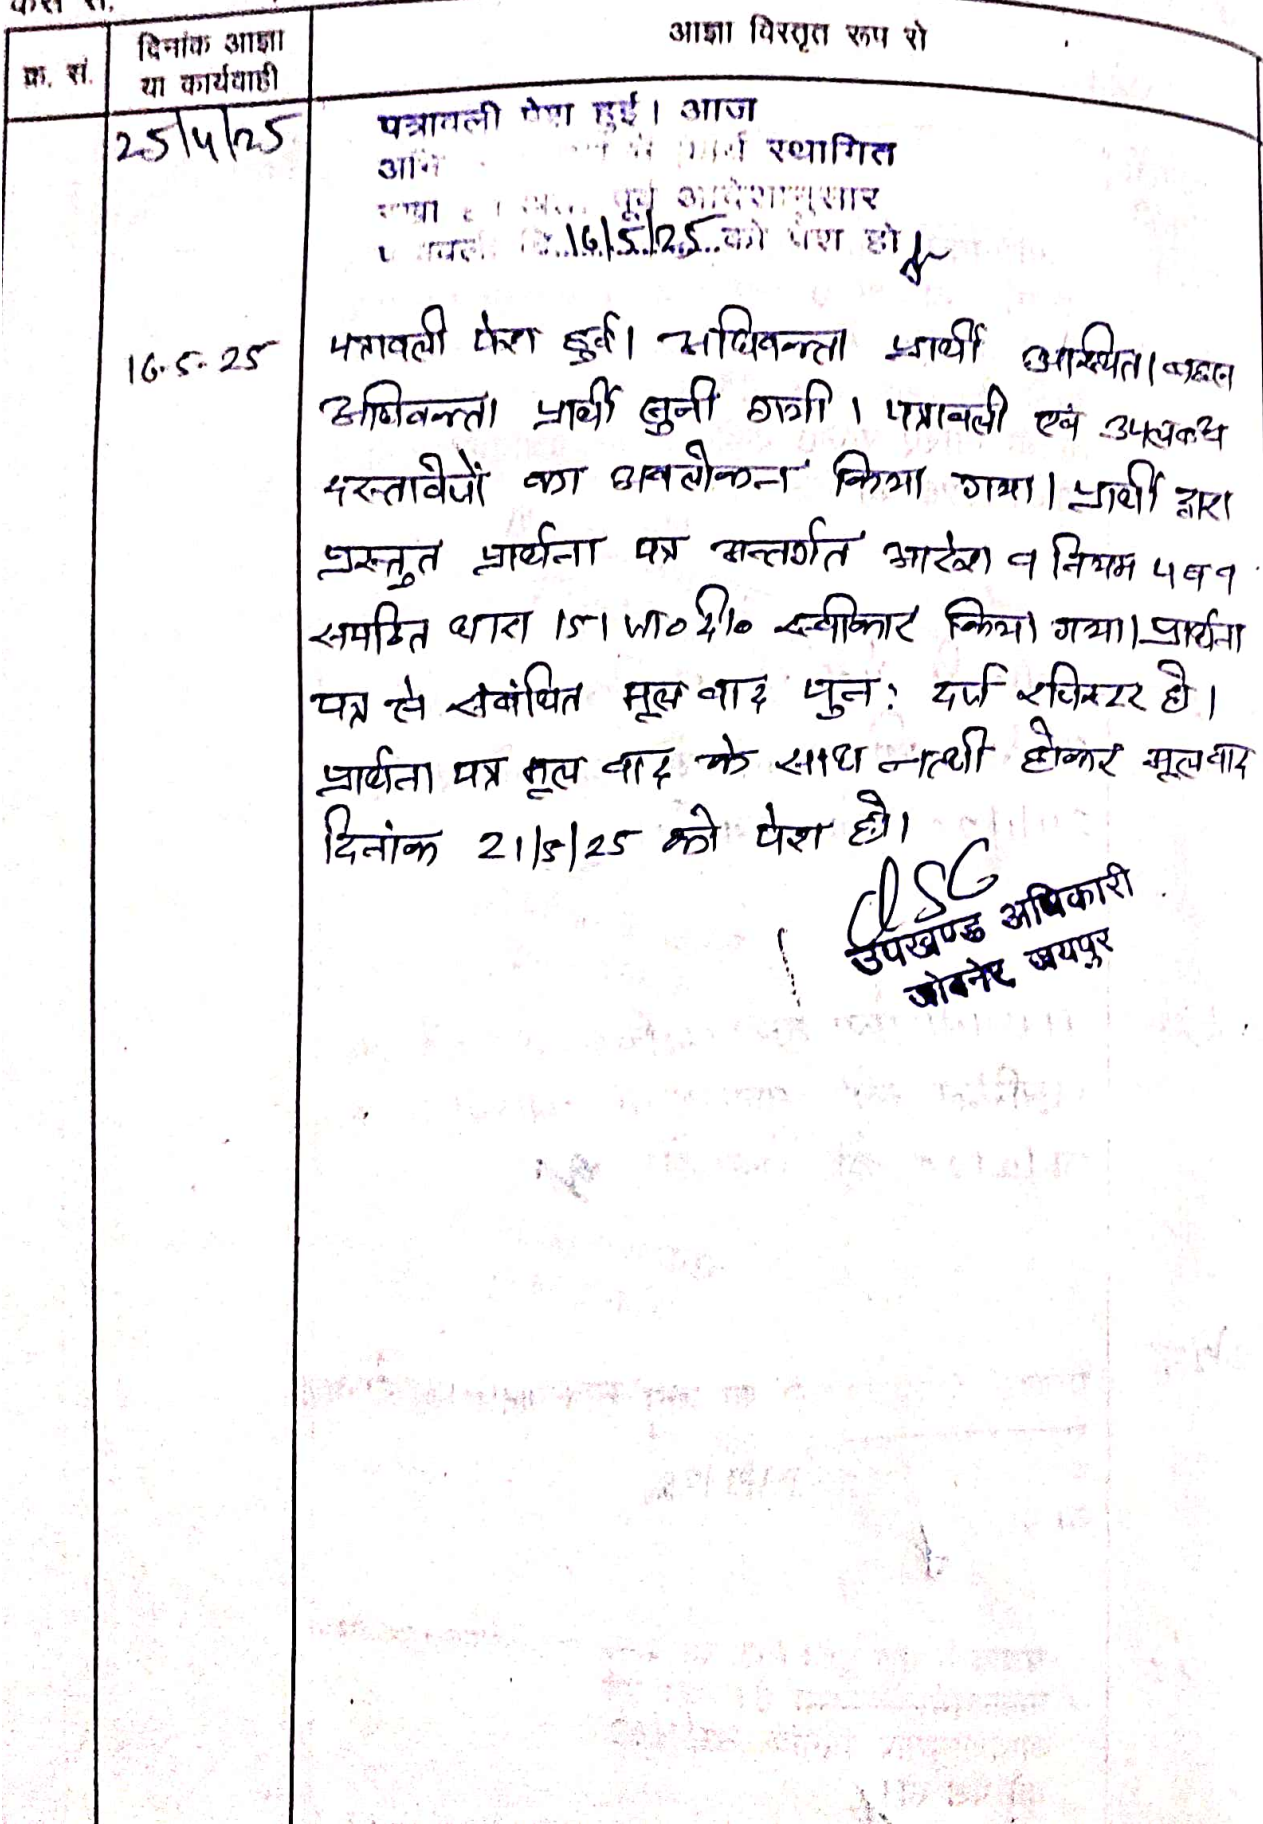 केस सं.
क्र. सं.
दिनांक आज्ञा
या कार्यवाही
आज्ञा विस्तृत रूप से
25/4/25
पत्रावली पेश हुई। आज
स्थगित
पूर्व आदेशानुसार
16/5/25 को पेश हो
16.5.25
पत्रावली पेश हुई। अधिवक्ता प्रार्थी उपस्थित। बहस
अधिवक्ता प्रार्थी सुनी गयी। पत्रावली एवं उपलब्ध
दस्तावेजों का अवलोकन किया गया। प्रार्थी द्वारा
प्रस्तुत प्रार्थना पत्र अन्तर्गत आदेश 9 नियम 4 व 9
सपठित धारा 151 जा० दी० स्वीकार किया गया। प्रार्थना
पत्र से संबंधित मूल वाद पुन: दर्ज रजिस्टर हो।
प्रार्थना पत्र मूल वाद के साथ नत्थी होकर मूल वाद
दिनांक 21/5/25 को पेश हो।
उपखण्ड अधिकारी
जोबनेर जयपुर